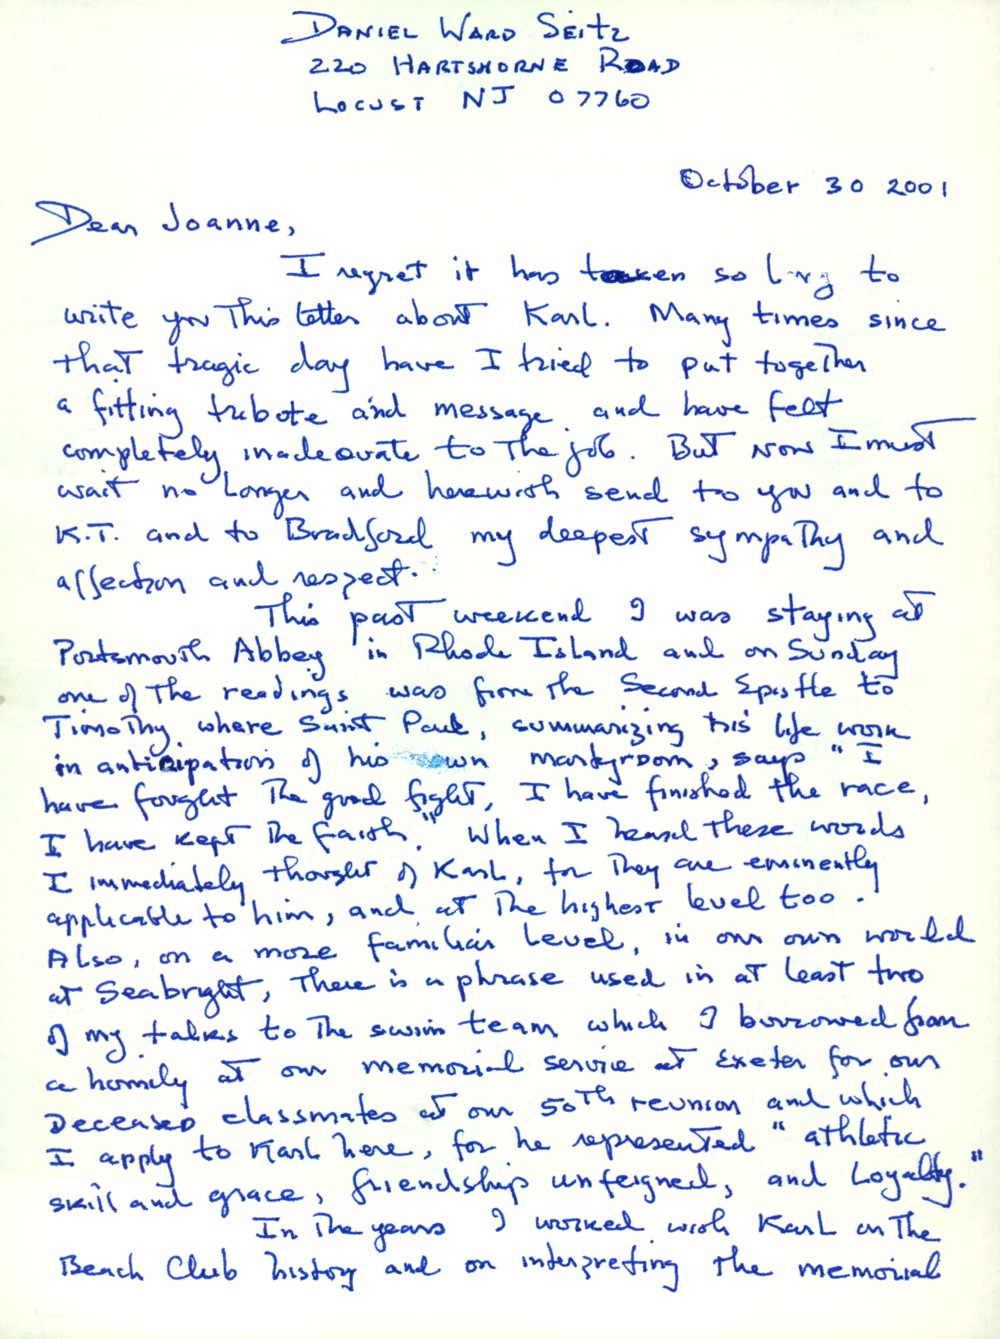 DANIEL WARD SEITZ
220 HARTSHORNE ROAD
LOCUST NJ 07760
October 30 2001
Dear Joanne,
I regret it has taken so long to
write you this letter about Karl. Many times since
that tragic day have I tried to put together
a fitting tribute and message and have felt
completely inadequate to the job. But now I must
wait no longer and herewith send to you and to
K.T. and to Bradford my deepest sympathy and
affection and respect.
This past weekend I was staying at
Portsmouth Abbey in Rhode Island and on Sunday
one of the readings was from the Second Epistle to
Timothy, where Saint Paul, summarizing his life work
in anticipation of his own martyrdom, says "I
have fought the good fight, I have finished the race,
I have kept the faith." When I heard these words
I immediately thought of Karl, for they are eminently
applicable to him, and at the highest level too.
Also, on a more familiar level, in our own world
at Seabright, there is a phrase used in at least two
of my talks to the swim team which I borrowed from
a homily at our memorial service at Exeter for our
deceased classmates at our 50th reunion and which
I apply to Karl here, for he represented "athletic
skill and grace, friendship unfeigned, and loyalty."
In the years I worked with Karl on the
Beach Club history and on interpreting the memorial